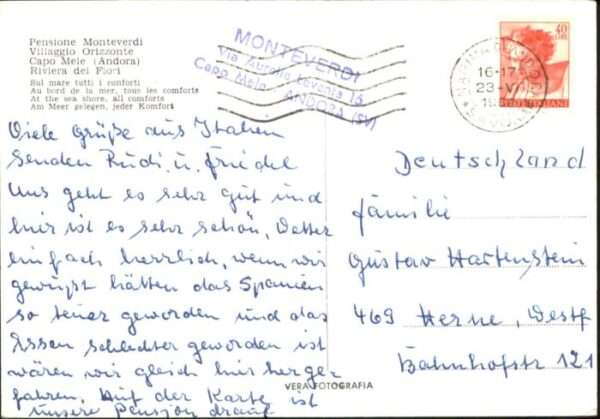 Pensione Monteverdi
Villaggio Orizzonte
Capo Mele (Andora)
Riviera dei Fiori
Sul mare tutti i conforti
Au bord de la mer, tous les comforts
At the sea shore, all comforts
Am Meer gelegen, jeder Komfort
MONTEVERDI
Via Aurelia Levante 16
Capo Mele - ANDORA (SV)
40
16-17
23-V
POSTE ITALIANE
Viele Grüße aus Italien
senden Rudi u. Friedel
Uns geht es sehr gut und
hier ist es sehr schön, Wetter
einfach herrlich, wenn wir
gewußt hätten das Spanien
so teuer geworden und das
Essen schlechter geworden ist
wären wir gleich hierherge-
fahren. Auf der Karte ist
unsere Pension drauf
Deutschland
Familie
Gustav Hartenstein
469 Herne, Westf
Bahnhofstr 121
VERA FOTOGRAFIA